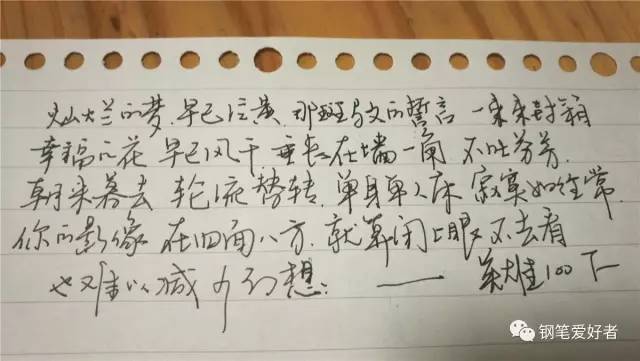 灿烂的梦,早已泛黄,那斑驳的誓言 一来来封箱
幸福的花 早已风干,垂长在墙一角 不吐芬芳.
朝来暮去 轮流替转,单身单人床 寂寞如往常.
你的影像 在四面八方,就算闭上眼 不去看
也难以减少幻想. —— 英雄100下
钢笔爱好者